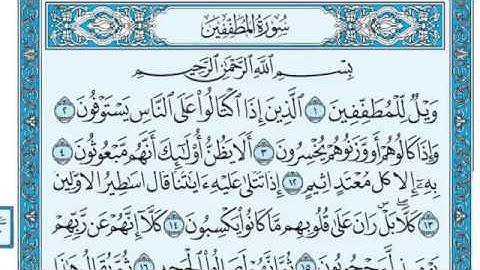 سُورَةُ المُطَفِّفِينَ
بِسْمِ اللَّهِ الرَّحْمَٰنِ الرَّحِيمِ
وَيْلٌ لِّلْمُطَفِّفِينَ ١ الَّذِينَ إِذَا اكْتَالُوا عَلَى النَّاسِ يَسْتَوْفُونَ ٢
وَإِذَا كَالُوهُمْ أَو وَّزَنُوهُمْ يُخْسِرُونَ ٣ أَلَا يَظُنُّ أُوْلَٰٓئِكَ أَنَّهُم مَّبْعُوثُونَ ٤
بِهِۦٓ إِلَّا كُلُّ مُعْتَدٍ أَثِيمٍ ١٢ إِذَا تُتْلَىٰ عَلَيْهِ ءَايَٰتُنَا قَالَ أَسَٰطِيرُ الْأَوَّلِينَ
١٣ كَلَّا بَلْ رَانَ عَلَىٰ قُلُوبِهِم مَّا كَانُوا يَكْسِبُونَ ١٤ كَلَّآ إِنَّهُمْ عَن رَّبِّهِمْ
يَوْمَئِذٍ لَّمَحْجُوبُونَ ١٥ ثُمَّ إِنَّهُمْ لَصَالُوا الْجَحِيمِ ١٦ ثُمَّ يُقَالُ هَٰذَا